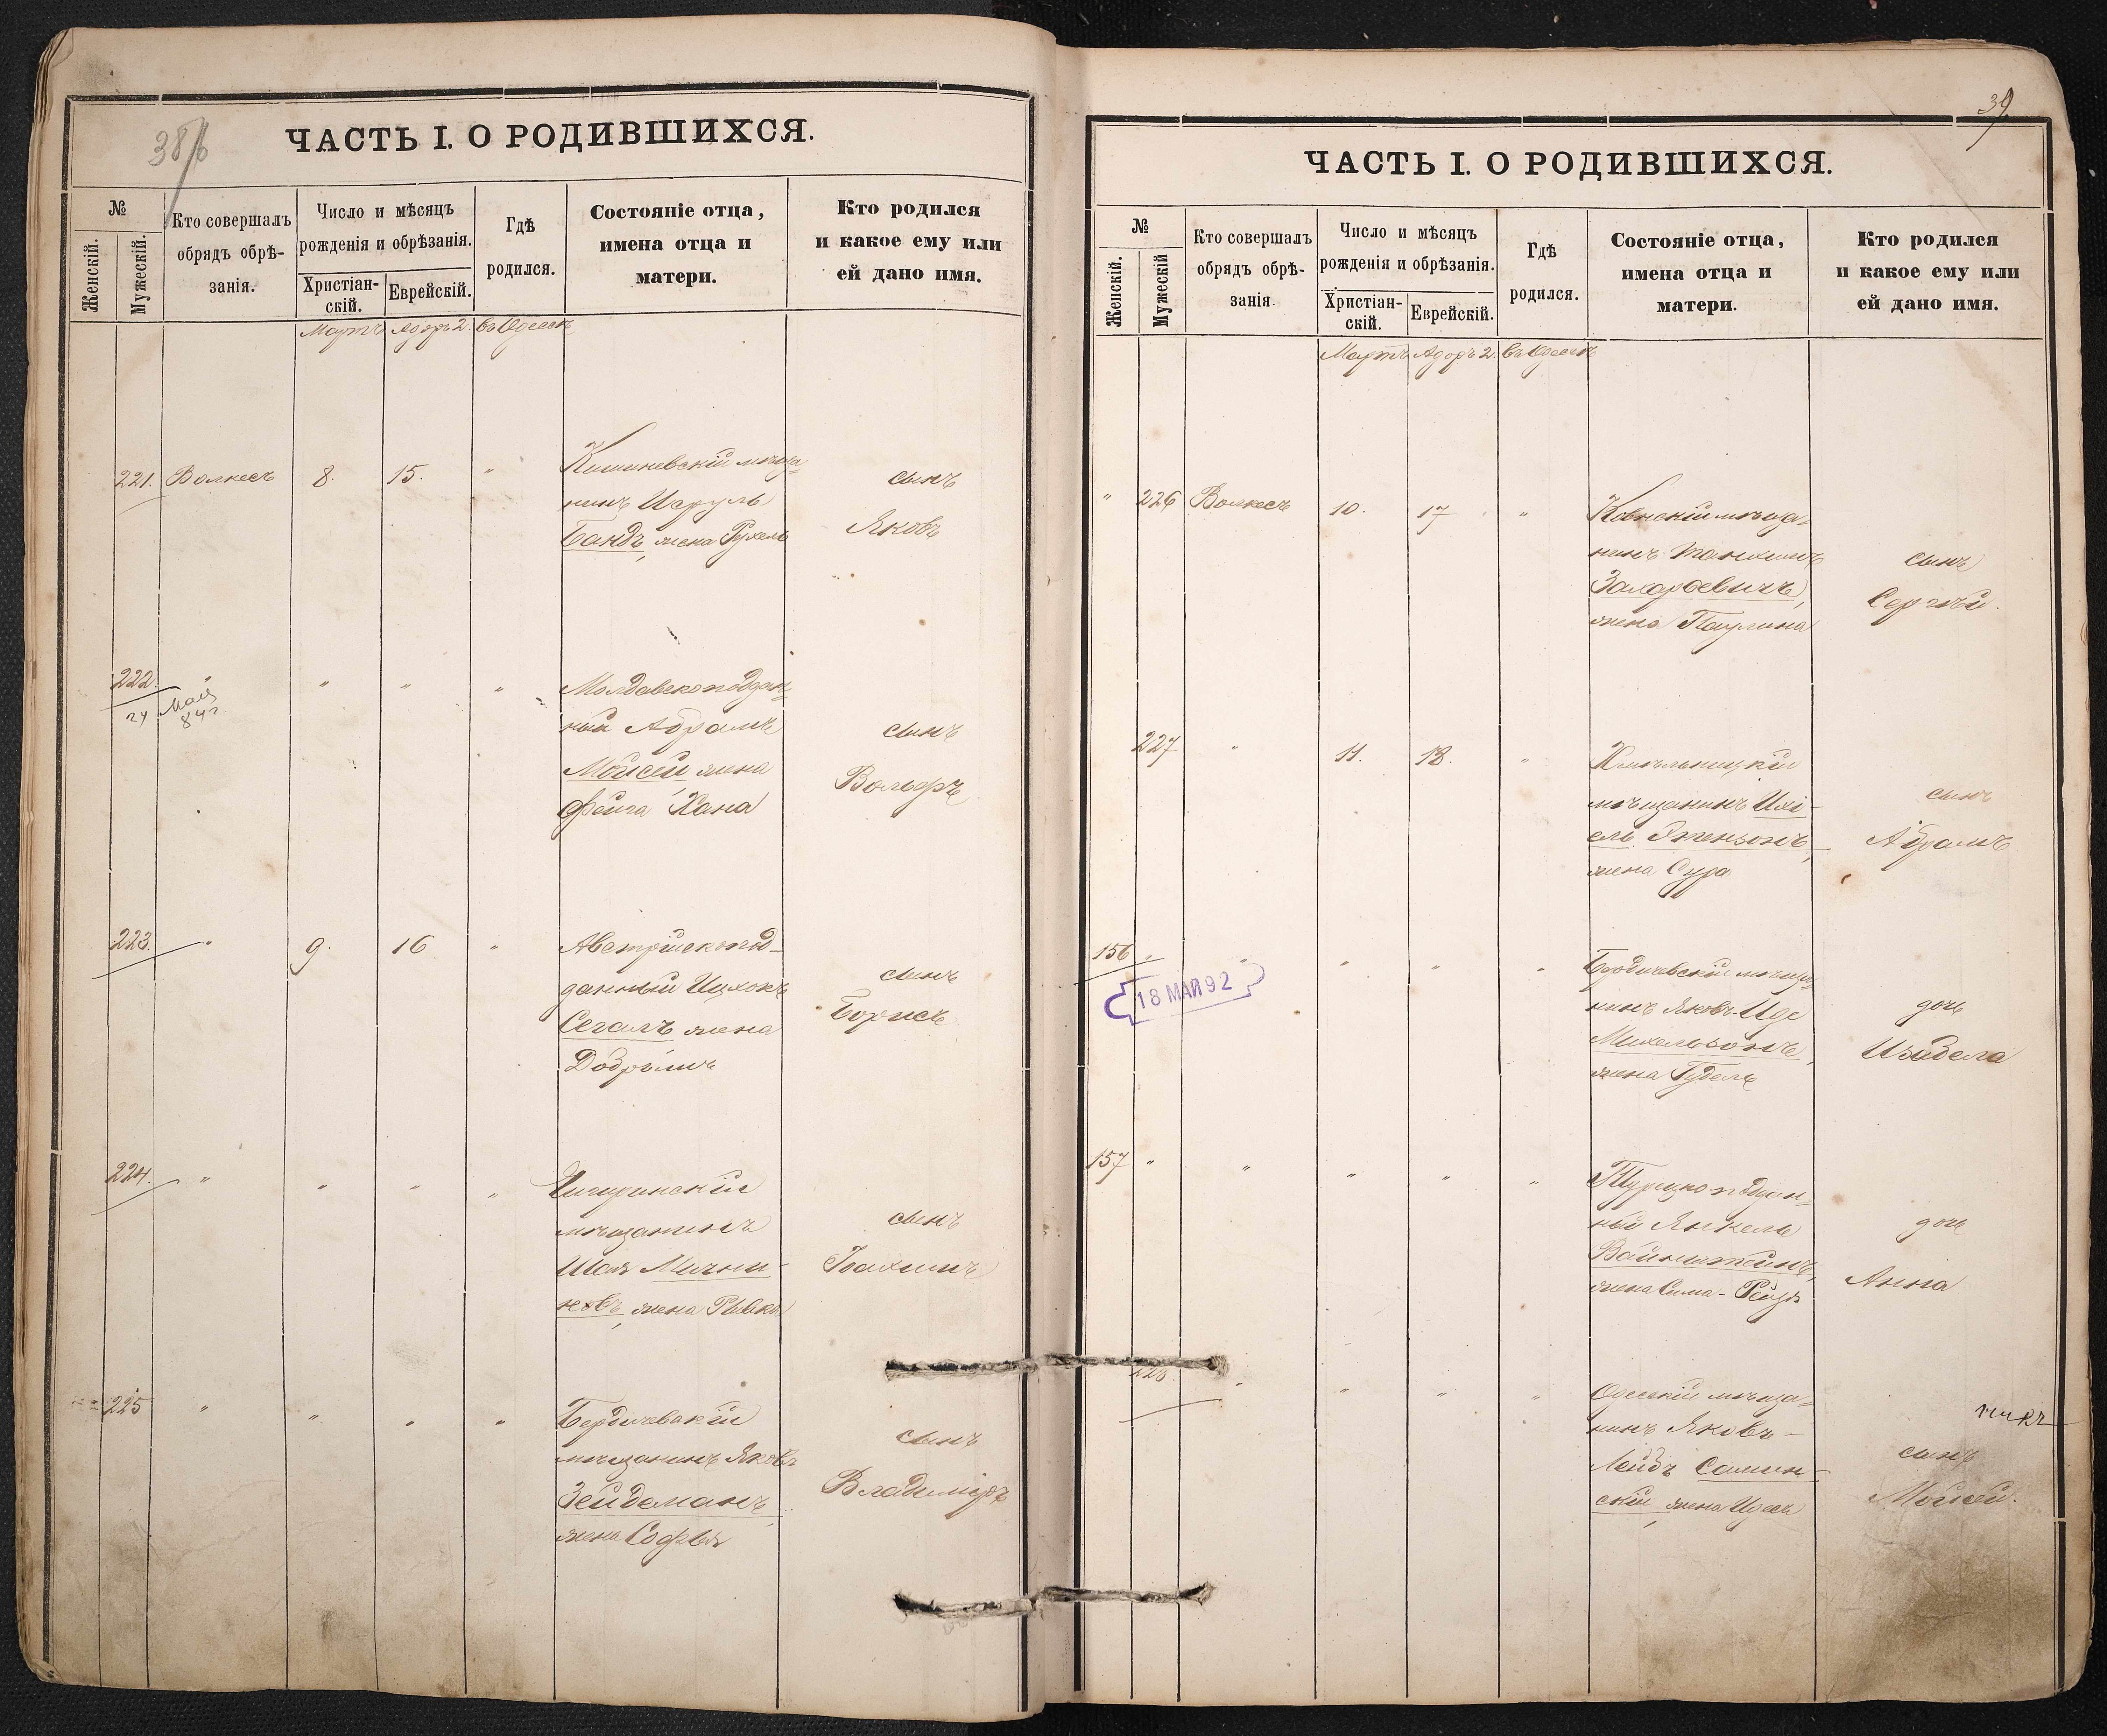 38/б
ЧАСТЬ I. О РОДИВШИХСЯ.
№
Женскій.
Мужескій.
Кто совершалъ
обрядъ обрѣ-
занія.
Число и мѣсяцъ
рожденія и обрѣзанія.
Христіан-
скій.
Еврейскій.
Гдѣ
родился.
Состояніе отца,
имена отца и
матери.
Кто родился
и какое ему или
ей дано имя.
Мартъ Адоръ 2. въ Одессѣ
221. Волкесъ 8. 15. "
Кишиневскій мѣща-
нинъ Исруль
Бандъ, жена Рухель
сынъ
Яковъ
222. " " " "
24 Мая
84 г.
Молдавскоподдан-
ный Абрамъ
Мойсей жена
Фейга Хана
сынъ
Вольфъ
223. " 9. 16 "
Австрійскопод-
данный Ицхокъ
Сегалъ жена
сынъ
Борисъ
224. " " " "
Чигиринскій
мѣщанинъ
Шая Мични-
ковъ, жена Рывка
сынъ
Іоахимъ
225 " " " "
Бердичевскій
мѣщанинъ Яковъ
Зейдеманъ,
жена Софья
сынъ
Владиміръ
39.
ЧАСТЬ I. О РОДИВШИХСЯ.
№
Женскій.
Мужескій
Кто совершалъ
обрядъ обрѣ-
занія
Число и мѣсяцъ
рожденія и обрѣзанія.
Христіан-
скій.
Еврейскій.
Гдѣ
родился.
Состояніе отца,
имена отца и
матери.
Кто родился
и какое ему или
ей дано имя.
Мартъ Адоръ 2. въ Одессѣ
" 226 Волкесъ 10. 17. "
Ковнскій мѣща-
нинъ Танхимъ
Захароевичъ,
жена Паулина
сынъ
Сергѣй.
227 " 11. 18. "
Хмѣльницкій
мѣщанинъ Ихі-
ель Этеньзонъ,
жена Сура
сынъ
Абрамъ
156 " " " " "
18 МАЙ 92
мѣща-
нинъ Яковъ-Иде
Михельзонъ,
жена Гудель
дочь
Изабела
157 " " " " "
Турецкоподдан-
ный Янкель
Вайнштейнъ,
жена Сима-Рейзя
дочь
Анна
228. " " " "
Одесскій мѣща-
нинъ Яковъ-
Лейбъ Самин-
скій, жена Идесъ
сынъ
Мойсей.